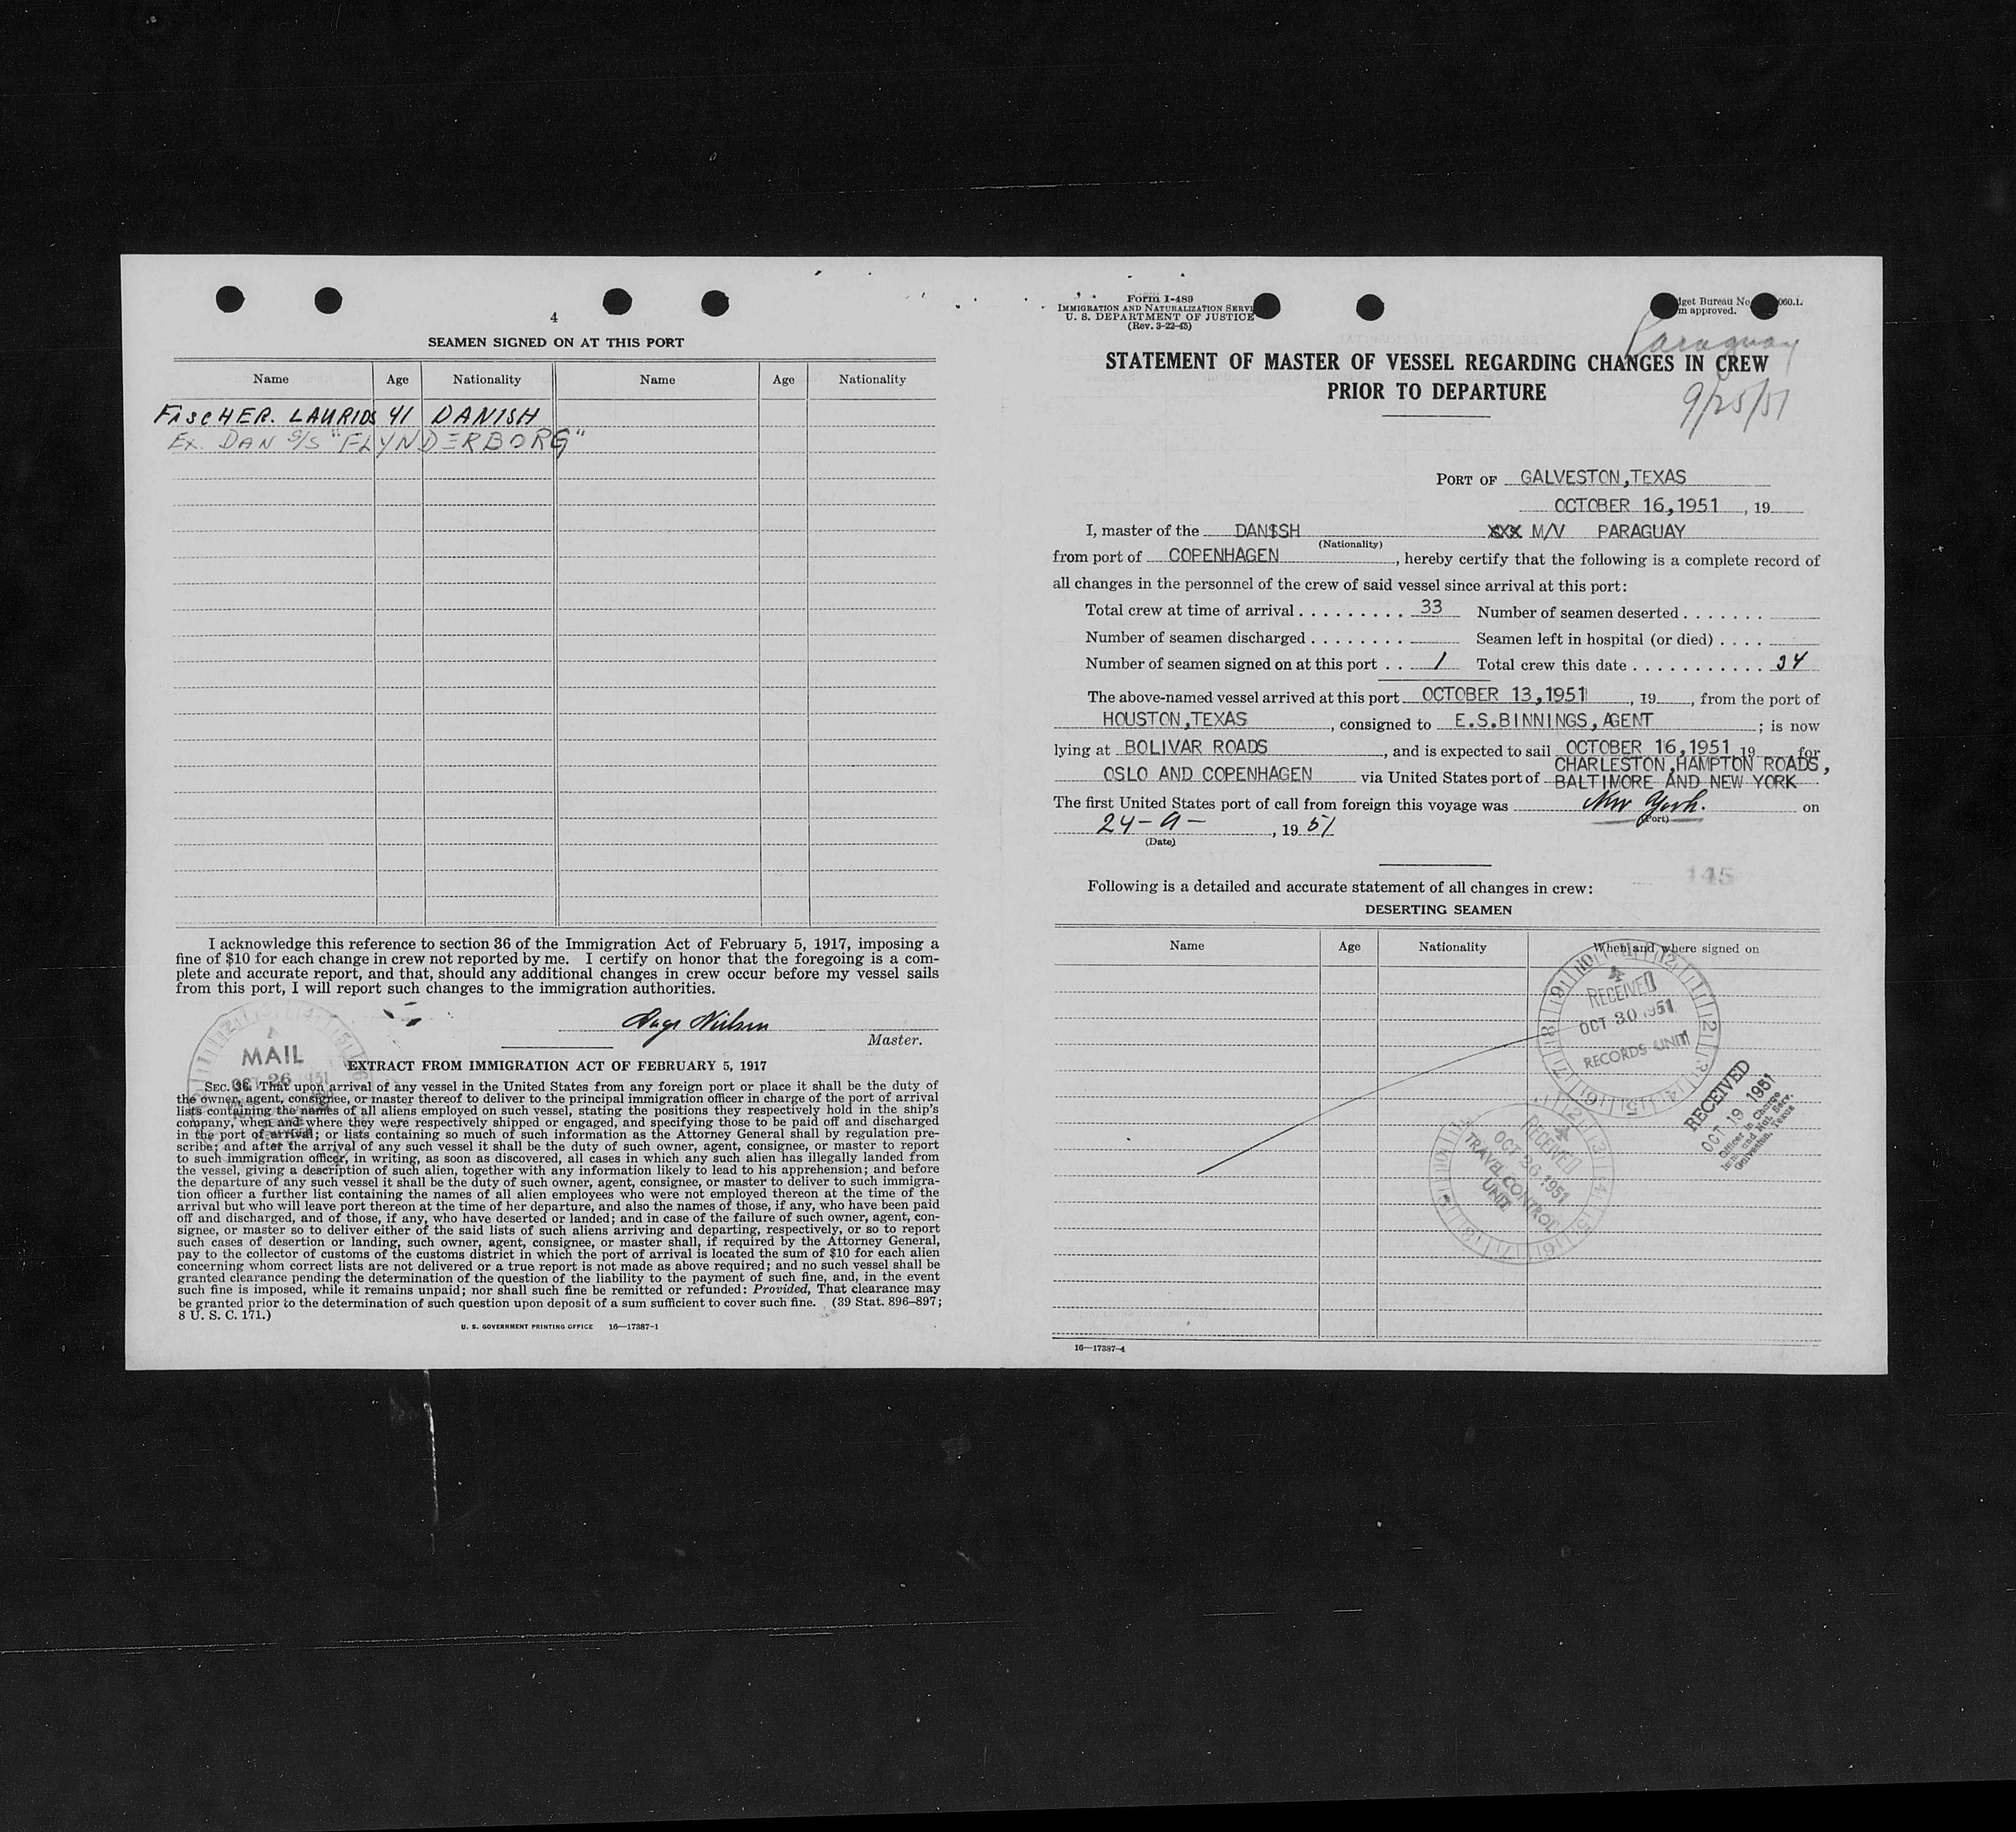 4
SEAMEN SIGNED ON AT THIS PORT
Name Age Nationality Name Age Nationality
FISCHER. LAURIDS 41 DANISH
EX. DAN S/S "FLYNDERBORG"
I acknowledge this reference to section 36 of the Immigration Act of February 5, 1917, imposing a
fine of $10 for each change in crew not reported by me. I certify on honor that the foregoing is a com-
plete and accurate report, and that, should any additional changes in crew occur before my vessel sails
from this port, I will report such changes to the immigration authorities.
Nielsen
Master.
MAIL
OCT 26 1951
EXTRACT FROM IMMIGRATION ACT OF FEBRUARY 5, 1917
SEC. 36. That upon arrival of any vessel in the United States from any foreign port or place it shall be the duty of
the owner, agent, consignee, or master thereof to deliver to the principal immigration officer in charge of the port of arrival
lists containing the names of all aliens employed on such vessel, stating the positions they respectively hold in the ship's
company, when and where they were respectively shipped or engaged, and specifying those to be paid off and discharged
in the port of arrival; or lists containing so much of such information as the Attorney General shall by regulation pre-
scribe; and after the arrival of any such vessel it shall be the duty of such owner, agent, consignee, or master to report
to such immigration officer, in writing, as soon as discovered, all cases in which any such alien has illegally landed from
the vessel, giving a description of such alien, together with any information likely to lead to his apprehension; and before
the departure of any such vessel it shall be the duty of such owner, agent, consignee, or master to deliver to such immigra-
tion officer a further list containing the names of all alien employees who were not employed thereon at the time of the
arrival but who will leave port thereon at the time of her departure, and also the names of those, if any, who have been paid
off and discharged, and of those, if any, who have deserted or landed; and in case of the failure of such owner, agent, con-
signee, or master so to deliver either of the said lists of such aliens arriving and departing, respectively, or so to report
such cases of desertion or landing, such owner, agent, consignee, or master shall, if required by the Attorney General,
pay to the collector of customs of the customs district in which the port of arrival is located the sum of $10 for each alien
concerning whom correct lists are not delivered or a true report is not made as above required; and no such vessel shall be
granted clearance pending the determination of the question of the liability to the payment of such fine, and, in the event
such fine is imposed, while it remains unpaid; nor shall such fine be remitted or refunded: Provided, That clearance may
be granted prior to the determination of such question upon deposit of a sum sufficient to cover such fine. (39 Stat. 896–897;
8 U. S. C. 171.)
U. S. GOVERNMENT PRINTING OFFICE 16—17387-1
Form I-489
IMMIGRATION AND NATURALIZATION SERVI
U. S. DEPARTMENT OF JUSTICE
(Rev. 3-22-45)
dget Bureau No. 060.1.
m approved.
Paraguay
9/25/51
STATEMENT OF MASTER OF VESSEL REGARDING CHANGES IN CREW
PRIOR TO DEPARTURE
PORT OF GALVESTON, TEXAS
OCTOBER 16, 1951, 19
I, master of the DANSSH XXX M/V PARAGUAY
(Nationality)
from port of COPENHAGEN, hereby certify that the following is a complete record of
all changes in the personnel of the crew of said vessel since arrival at this port:
Total crew at time of arrival . . . . . . . . . 33 Number of seamen deserted . . . . . . .
Number of seamen discharged . . . . . . . . Seamen left in hospital (or died) . . . .
Number of seamen signed on at this port . . 1 Total crew this date . . . . . . . . . . . 34
The above-named vessel arrived at this port OCTOBER 13, 1951, 19, from the port of
HOUSTON, TEXAS, consigned to E.S.BINNINGS, AGENT; is now
lying at BOLIVAR ROADS, and is expected to sail OCTOBER 16, 1951 19, for
OSLO AND COPENHAGEN via United States port of CHARLESTON, HAMPTON ROADS, BALTIMORE AND NEW YORK
The first United States port of call from foreign this voyage was New York. on
(Port)
24-9-, 1951
(Date)
145
Following is a detailed and accurate statement of all changes in crew:
DESERTING SEAMEN
Name Age Nationality When and where signed on
RECEIVED
OCT 30 1951
RECORDS UNIT
RECEIVED
OCT 19 1951
Officer in Charge
Imm. and Nat. Serv.
Galveston, Texas
RECEIVED
OCT 26 1951
TRAVEL CONTROL
UNIT
16—17387-4